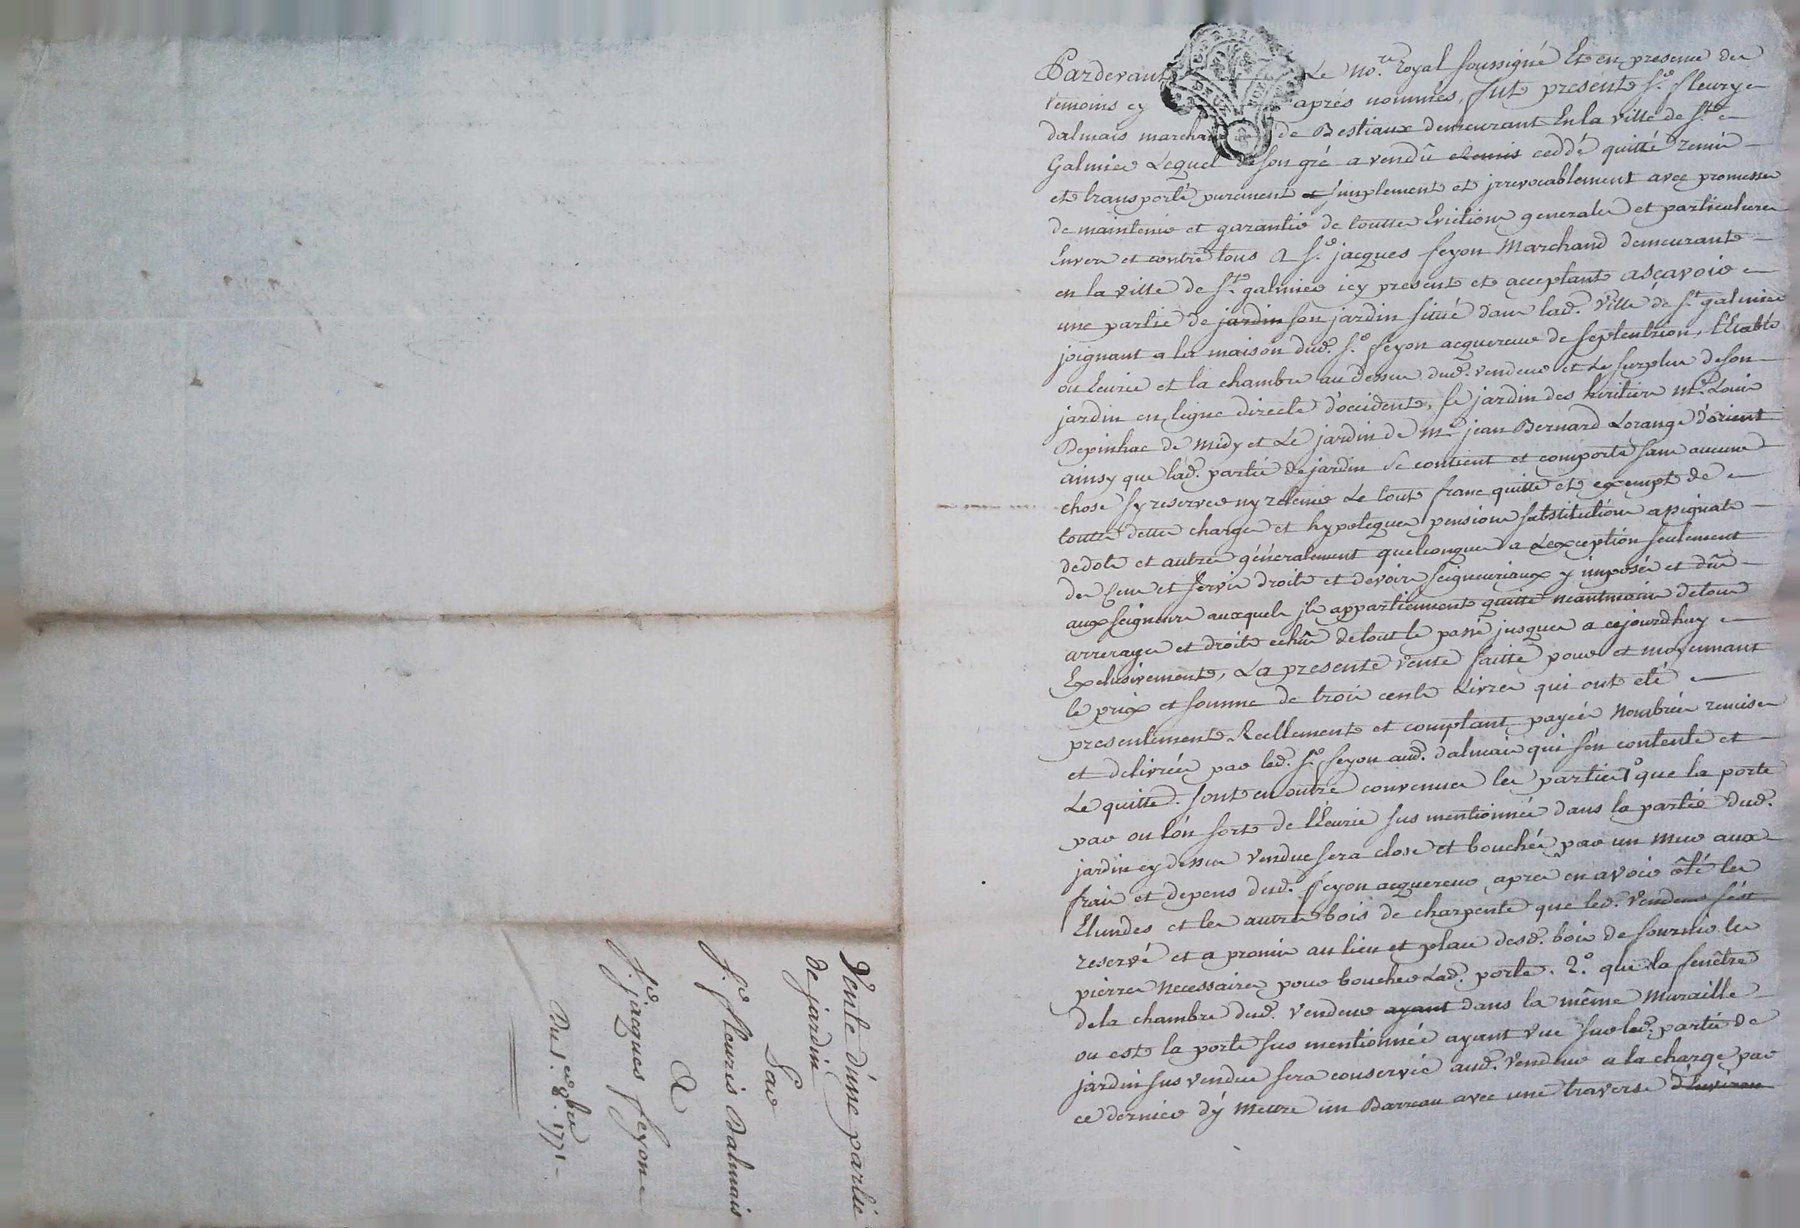 Pardevant Le No.re Royal soussigné Et en presence des
temoins cy après nommés, fut present S.r fleury
dalmais marchand de Bestiaux demeurant En la ville de S.t
Galmier Lequel de son gré a vendû ceddé quitté remis
et transporté purement simplement et jrrevocablement avec promesse
de maintenir et garantir de toutte Eviction generale et particuliere
Envers et contre tous a S.r jacques feyon Marchand demeurant
en la ville de S.t galmier icy present et acceptant ascavoir
une partie de jardin son jardin situé dans lad. Ville de S.t galmier
joignant a la maison dud. S.r feyon acquereur de septentrion, l'Etable
ou Ecurie et la chambre au dessus dud. vendeur et Le surplus de son
jardin en ligne directe d'occident, le jardin des héritiers M.e Louis
Depinhac de midy et Le jardin de M.e jean Bernard Lorange d'orient
ainsy que lad. partie de jardin se contient et comporte sans aucune
chose sy reserver ny retenir Le tout franc quitte et exempt de
toutes dettes charges et hypoteques pensions substitutions assignats
de dote et autres géneralement quelconques a Lexception seulement
des Cens et servis droits et devoirs seigneuriaux y imposés et dûs
aux seigneurs auxquels jls appartiennent quitte neantmoins de tous
arrerages et droits echûs de tout le passé jusques a cejourdhuy
Exclusivement, La presente vente faitte pour et moyennant
le prix et somme de trois cents Livres qui ont eté
presentement Reellement et comptant payées Nombrées remises
et delivrées par led. S.r feyon aud. dalmais qui s'en contente et
Le quitte. sont en outre convenues les parties 1.o que la porte
par ou l'on sort de l'Ecurie sus mentionnée dans la partie dud.
jardin cy dessus vendue sera close et bouchée par un mur aux
frais et depens dud. feyon acquereur après en avoir ôté les
Elundes et les autres bois de charpente que led. Vendeur s'est
reservé et a promis au lieu et place desd. bois de fournir les
pierres necessaires pour boucher Lad. porte. 2.o que la fenêtre
de la chambre dud. Vendeur ayant dans la même Muraille
ou est la porte sus mentionnée ayant vue sur lad. partie de
jardin sus vendue sera conservée aud. Vendeur a la charge par
ce dernier d'y Mettre un Barreau avec une traverse d'Environ
Vente d'une partie
de jardin
Par
S.r fleuris Dalmais
A
S.r jacques feyon
Du 1. 8.bre 1771